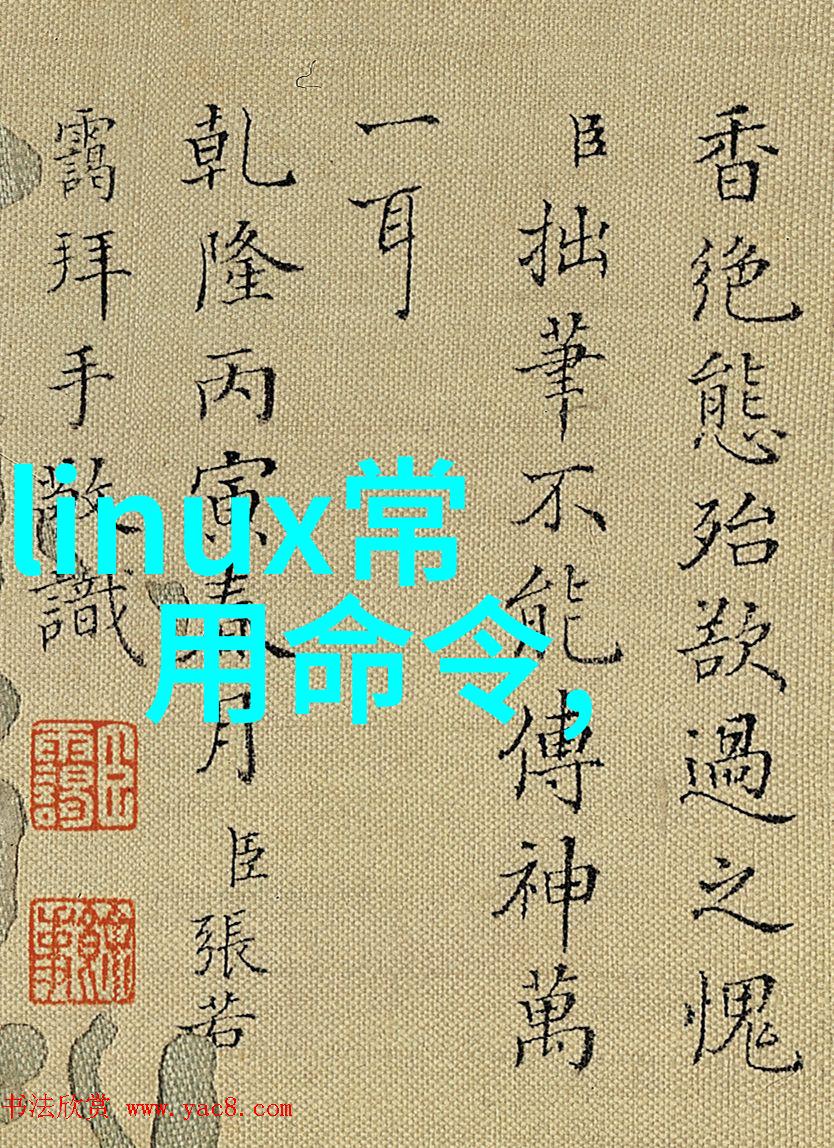 香絶態殆欲過之愧
臣拙筆不能傳神萬
一耳
乾隆丙寅春月臣張若
靄拜手敬識
linux常
用命令,
书法欣赏 www.yac8.com